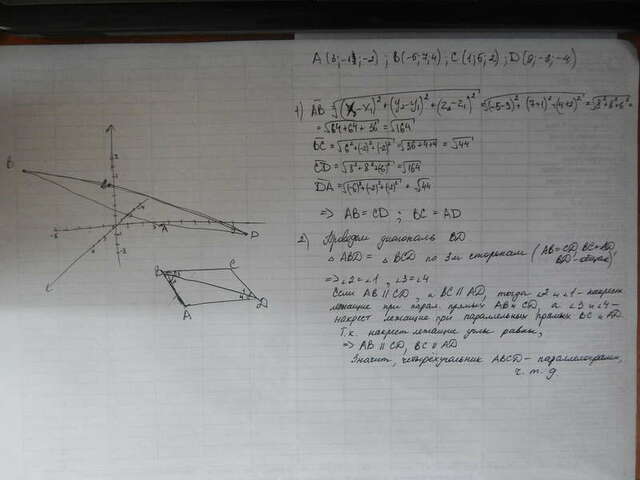 A(3;-1;-2); B(-5;7;4); C(1;5;2); D(9;-3;-4)
1) AB = √(X₂-X₁)² + (Y₂-Y₁)² + (Z₂-Z₁)² = √(-5-3)² + (7+1)² + (4+2)² = √8²+8²+6² =
= √64+64+36 = √164
BC = √6²+(-2)²+(-2)² = √36+4+4 = √44
CD = √8²+8²+(6)² = √164
DA = √(-6)²+(-2)²+(-2)² + √44
=> AB = CD ; BC = AD
2) Проведем диагональ BD
△ ABD = △ BCD по 3м сторонам (AB=CD, BC=AD, BD-общая)
=> ∠2=∠1, ∠3=∠4
Если AB || CD, а BC || AD, тогда ∠2 и ∠1 - накрест
лежащие при парал. прямых AB и CD, а ∠3 и ∠4 -
накрест лежащие при параллельных прямых BC и AD
Т.к. накрест лежащие углы равны,
=> AB || CD, BC || AD
Значит, четырёхугольник ABCD - параллелограмм,
ч. т. д
B
D
A
C
B
C
A
D